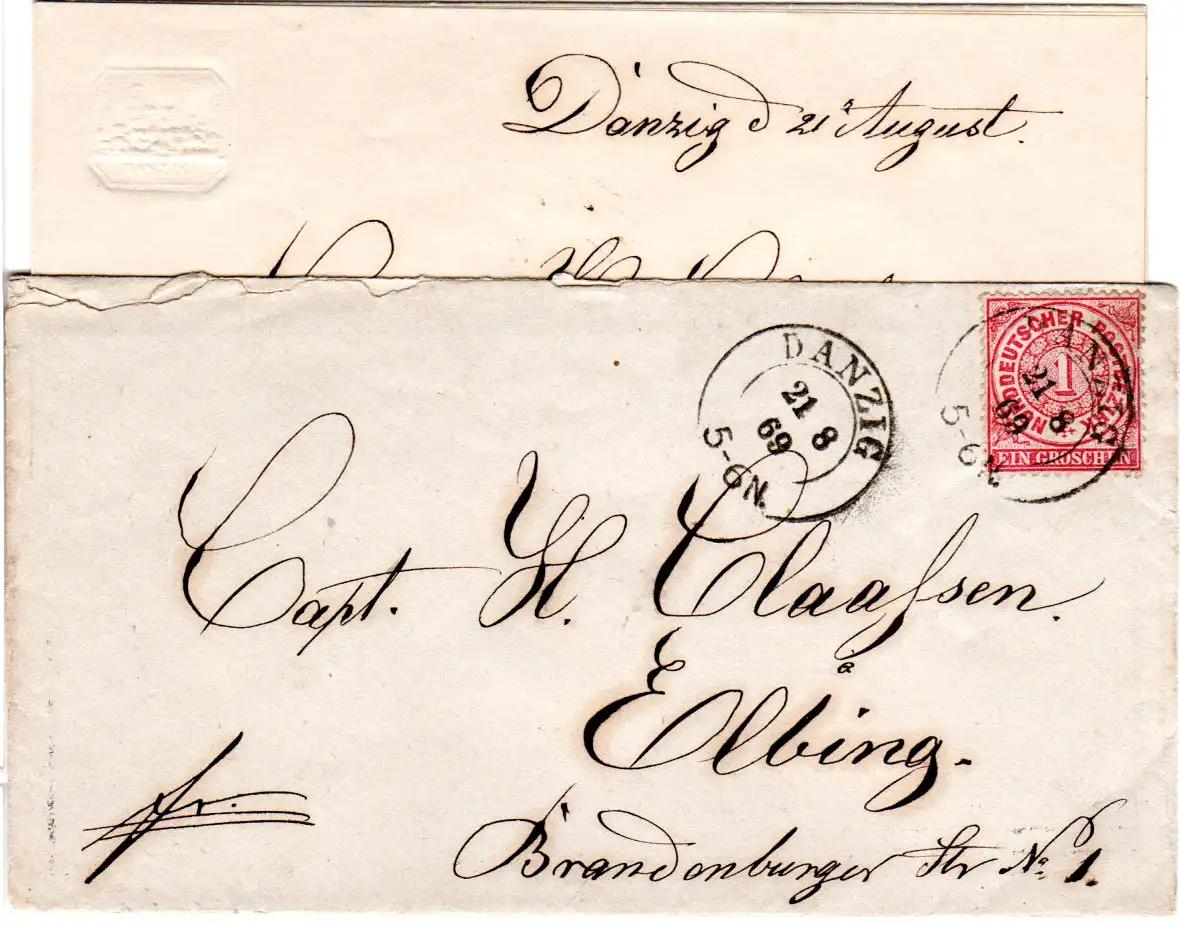 DANZIG
Danzig d 21 August.
DANZIG
21 8
69
5-6N.
DANZIG
21 8
69
5-6N.
NORDDEUTSCHER POSTBEZIRK
1
EIN GROSCHEN
Capt. H. Claaſsen.
Elbing.
fr.
Brandenburger Str No 1.